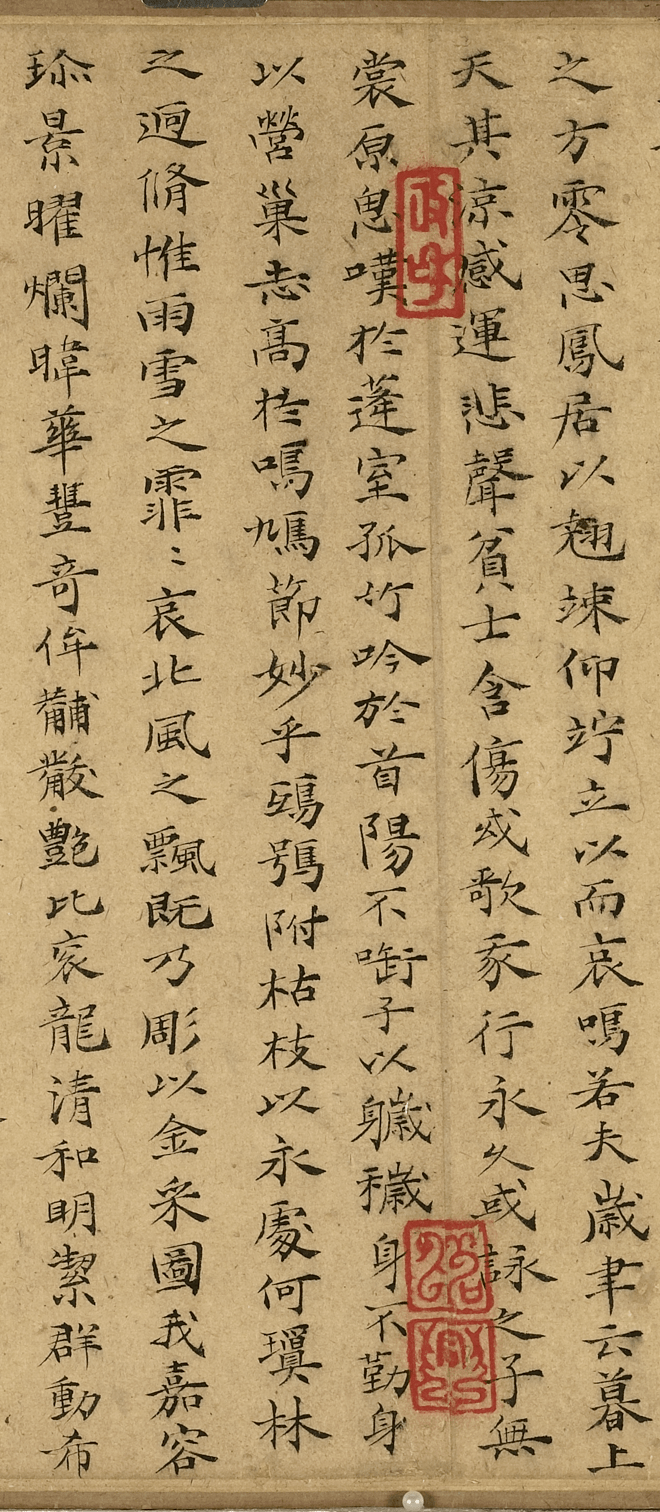 之方零思鳳居以翹竦仰竚立以而哀鳴若夫歲聿云暮上
天其涼感運悲聲貧士含傷或歌我行永久或詠之子無
裳原思嘆於蓬室孤竹吟於首陽不銜子以穢身不勤身
以營巢志高於鳴鳩節妙乎鴟鴞附枯枝以永處何瓊林
之迥脩惟雨雪之霏〻哀北風之飄既乃彫以金采圖我嘉容
珎景曜爛暐華豐奇侔黼黻艶比衮龍清和明潔群動希